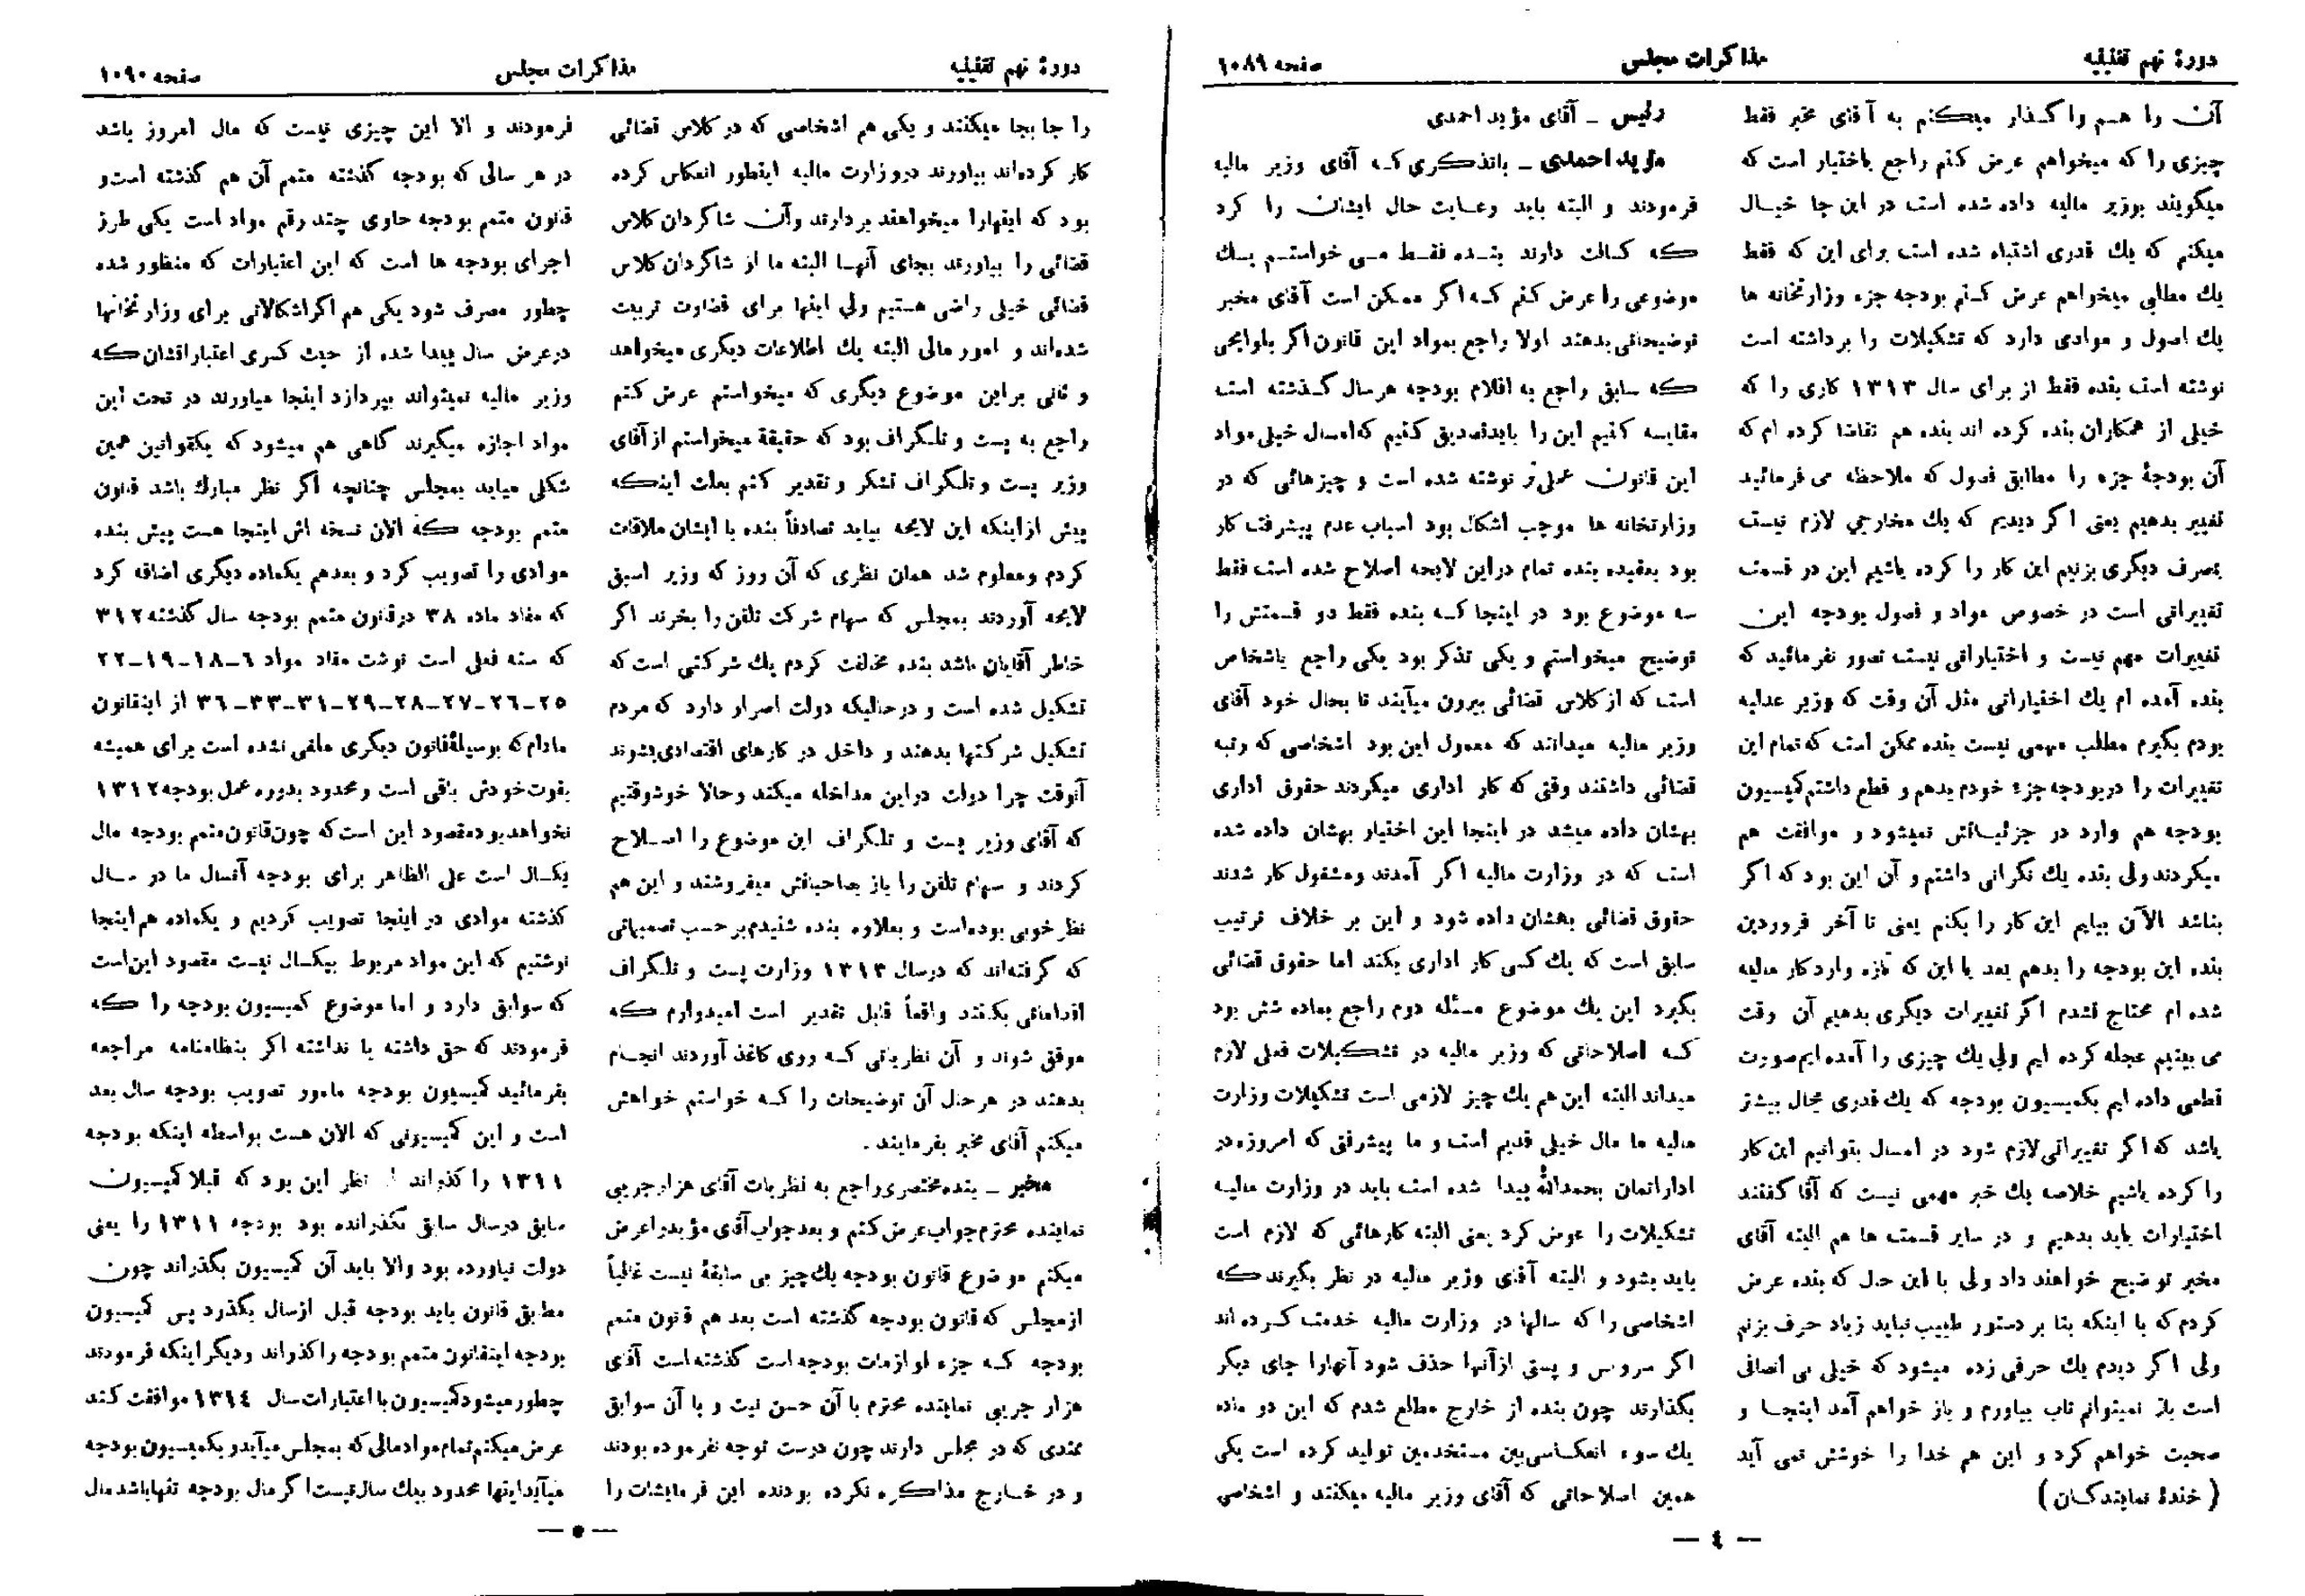 دورۀ نهم تقنینیه
مذاکرات مجلس
صفحه ۱۰۸۹
آن را هم واگذار میکنم به آقای مخبر فقط
چیزی را که میخواهم عرض کنم راجع باختیار است که
میگویند بوزیر مالیه داده شده است در این جا خیال
میکنم که یك قدری اشتباه شده است برای این که فقط
یك مطلبی میخواهم عرض کنم بودجه جزء وزارتخانه ها
یك اصول و موادی دارد که تشکیلات را برداشته است
نوشته است بنده فقط از برای سال ۱۳۱۳ کاری را که
خیلی از همکاران بنده کرده اند بنده هم تقاضا کرده ام که
آن بودجۀ جزء را مطابق فصول که ملاحظه می فرمائید
تغییر بدهیم یعنی اگر دیدیم که یك مخارجی لازم نیست
بصرف دیگری بزنیم این کار را کرده باشیم این در قسمت
تغییراتی است در خصوص مواد و فصول بودجه این
تغییرات مهم نیست و اختیاراتی نیست تصور نفرمائید که
بنده آمده ام یك اختیاراتی مثل آن وقت که وزیر عدلیه
بودم بگیرم مطلب مهمی نیست بنده ممکن است که تمام این
تغییرات را در بودجه جزء خودم بدهم و قطع داشتم کمیسیون
بودجه هم وارد در جزئیاتش نمیشود و موافقت هم
میکردند ولی بنده یك نگرانی داشتم و آن این بود که اگر
بناشد الآن بیایم این کار را بکنم یعنی تا آخر فروردین
بنده این بودجه را بدهم بعد با این که تازه وارد کار مالیه
شده ام محتاج نشدم اگر تغییرات دیگری بدهیم آن وقت
می بینیم عجله کرده ایم ولی یك چیزی را آمده ایم صورت
قطعی داده ایم بکمیسیون بودجه که یك قدری مجال بیشتر
باشد که اگر تغییراتی لازم شود در امسال بتوانیم این کار
را کرده باشیم خلاصه یك خبر مهمی نیست که آقا گفتند
اختیارات باید بدهیم و در سایر قسمت ها هم البته آقای
مخبر توضیح خواهند داد ولی با این حال که بنده عرض
کردم که با اینکه بنا بر دستور طبیب نباید زیاد حرف بزنم
ولی اگر دیدم یك حرفی زده میشود که خیلی بی انصافی
است باز نمیتوانم تاب بیاورم و باز خواهم آمد اینجا و
صحبت خواهم کرد و این هم خدا را خوشش نمی آید
(خندۀ نمایندگان)
رئیس ـ آقای مؤید احمدی
مؤید احمدی ـ باتذکری که آقای وزیر مالیه
فرمودند و البته باید رعایت حال ایشان را کرد
که کسالت دارند بنده فقط می خواستم یك
موضوعی را عرض کنم که اگر ممکن است آقای مخبر
توضیحاتی بدهند اولا راجع بمواد این قانون اگر بلوایحی
که سابق راجع به اقلام بودجه هر سال گذشته است
مقایسه کنیم این را باید تصدیق کنیم که امسال خیلی مواد
این قانون عملی‌تر نوشته شده است و چیزهائی که در
وزارتخانه ها موجب اشکال بود اسباب عدم پیشرفت کار
بود بعقیده بنده تمام در این لایحه اصلاح شده است فقط
سه موضوع بود در اینجا که بنده فقط دو قسمتش را
توضیح میخواستم و یکی تذکر بود یکی راجع باشخاص
است که از کلاس قضائی بیرون میآیند تا بحال خود آقای
وزیر مالیه میدانند که معمول این بود اشخاصی که رتبه
قضائی داشتند وقتی که کار اداری میکردند حقوق اداری
بهشان داده میشد در اینجا این اختیار بهشان داده شده
است که در وزارت مالیه اگر آمدند و مشغول کار شدند
حقوق قضائی بهشان داده شود و این بر خلاف ترتیب
سابق است که یك کسی کار اداری بکند اما حقوق قضائی
بگیرد این یك موضوع مسئله دوم راجع بماده شش بود
که اصلاحاتی که وزیر مالیه در تشکیلات فعلی لازم
میداند البته این هم یك چیز لازمی است تشکیلات وزارت
مالیه ما مال خیلی قدیم است و ما پیشرفتی که امروزه در
اداراتمان بحمدالله پیدا شده است باید در وزارت مالیه
تشکیلات را عوض کرد یعنی البته کارهائی که لازم است
باید بشود و البته آقای وزیر مالیه در نظر بگیرند که
اشخاصی را که سالها در وزارت مالیه خدمت کرده اند
اگر سرویس و پستی از آنها حذف شود آنها را جای دیگر
بگذارند چون بنده از خارج مطلع شدم که این دو ماده
یك سوء انعکاسی بین مستخدمین تولید کرده است یکی
همین اصلاحاتی که آقای وزیر مالیه میکنند و اشخاصی
— ٤ —
دورۀ نهم تقنینیه
مذاکرات مجلس
صفحه ۱۰۹۰
را جا بجا میکنند و یکی هم اشخاصی که در کلاس قضائی
کار کرده‌اند بیاورند در وزارت مالیه اینطور انعکاس کرده
بود که اینهارا میخواهند بردارند وآن شاگردان کلاس
قضائی را بیاورند بجای آنها البته ما از شاگردان کلاس
قضائی خیلی راضی هستیم ولی اینها برای قضاوت تربیت
شده‌اند و امور مالی البته یك اطلاعات دیگری میخواهد
و ثانی بر این موضوع دیگری که میخواستم عرض کنم
راجع به پست و تلگراف بود که حقیقة میخواستم از آقای
وزیر پست و تلگراف تشکر و تقدیر کنم بعلت اینکه
پیش از اینکه این لایحه بیاید تصادفاً بنده با ایشان ملاقات
کردم و معلوم شد همان نظری که آن روز که وزیر اسبق
لایحه آوردند بمجلس که سهام شرکت تلفن را بخرند اگر
خاطر آقایان باشد بنده مخالفت کردم یك شرکتی است که
تشکیل شده است و در حالیکه دولت اصرار دارد که مردم
تشکیل شرکتها بدهند و داخل در کارهای اقتصادی بشوند
آنوقت چرا دولت در این مداخله میکند وحالا خوشوقتیم
که آقای وزیر پست و تلگراف این موضوع را اصلاح
کردند و سهام تلفن را باز بصاحبانش میفروشند و این هم
نظر خوبی بوده‌است و بعلاوه بنده شنیدم بر حسب تصمیماتی
که گرفته‌اند که در سال ۱۳۱۳ وزارت پست و تلگراف
اقداماتی بکنند واقعاً قابل تقدیر است امیدوارم که
موفق شوند و آن نظریاتی که روی کاغذ آوردند انجام
بدهند در هر حال آن توضیحات را که خواستم خواهش
میکنم آقای مخبر بفرمایند .
مخبر ـ بنده مختصری راجع به نظریات آقای هزارجریبی
نماینده محترم جواب عرض کنم و بعد جواب آقای مؤید را عرض
میکنم موضوع قانون بودجه یك چیز بی سابقۀ نیست غالباً
از مجلس که قانون بودجه گذشته است بعد هم قانون متمم
بودجه که جزء لوازمات بودجه است گذشته است آقای
هزار جریبی نماینده محترم با آن حسن نیت و با آن سوابق
ممتدی که در مجلس دارند چون درست توجه نفرموده بودند
و در خارج مذاکره نکرده بودند این فرمایشات را
فرمودند و الا این چیزی نیست که مال امروز باشد
در هر سالی که بودجه گذشته متمم آن هم گذشته است و
قانون متمم بودجه حاوی چند رقم مواد است یکی طرز
اجرای بودجه ها است که این اعتبارات که منظور شده
چطور مصرف شود یکی هم اگر اشکالاتی برای وزارتخانها
در عرض سال پیدا شده از حیث کسری اعتباراتشان که
وزیر مالیه نمیتواند بپردازد اینجا میاورند در تحت این
مواد اجازه میگیرند گاهی هم میشود که یکقوانین همین
شکلی میاید بمجلس چنانچه اگر نظر مبارك باشد قانون
متمم بودجه که الآن نسخه اش اینجا هست پیش بنده
موادی را تصویب کرد و بعد هم یکماده دیگری اضافه کرد
که مفاد ماده ۳۸ در قانون متمم بودجه سال گذشته ۳۱۲
که سنه فعلی است نوشت مفاد مواد ٦-۱۸-۱۹-۲۲
۲۵-۲٦-۲۷-۲۸-۲۹-۳۱-۳۳-۳٦ از اینقانون
مادام که بوسیلۀ قانون دیگری ملغی نشده است برای همیشه
بقوت خودش باقی است و محدود بدوره عمل بودجه ۱۳۱۲
نخواهد بود مقصود این است که چون قانون متمم بودجه مال
یکسال است علی الظاهر برای بودجه آنسال ما در سال
گذشته موادی در اینجا تصویب کردیم و یکماده هم اینجا
نوشتیم که این مواد مربوط بیکسال نیست مقصود این است
که سوابق دارد و اما موضوع کمیسیون بودجه را که
فرمودند که حق داشته یا نداشته اگر بنظامنامه مراجعه
بفرمائید کمیسیون بودجه مامور تصویب بودجه سال بعد
است و این کمیسیونی که الان هست بواسطه اینکه بودجه
۱۳۱۱ را گذراند نظر این بود که قبلا کمیسیون
سابق در سال سابق نگذرانده بود بودجه ۱۳۱۱ را یعنی
دولت نیاورده بود والا باید آن کمیسیون بگذراند چون
مطابق قانون باید بودجه قبل از سال بگذرد پس کمیسیون
بودجه اینقانون متمم بودجه را گذراند و دیگر اینکه فرمودند
چطور میشود کمیسیون با اعتبارات سال ۱۳۱٤ موافقت کند
عرض میکنم تمام مواد مالی که بمجلس میآید و بکمیسیون بودجه
میآید اینها محدود بیك سال نیست اگر مال بودجه تنها باشد مال
— ٥ —